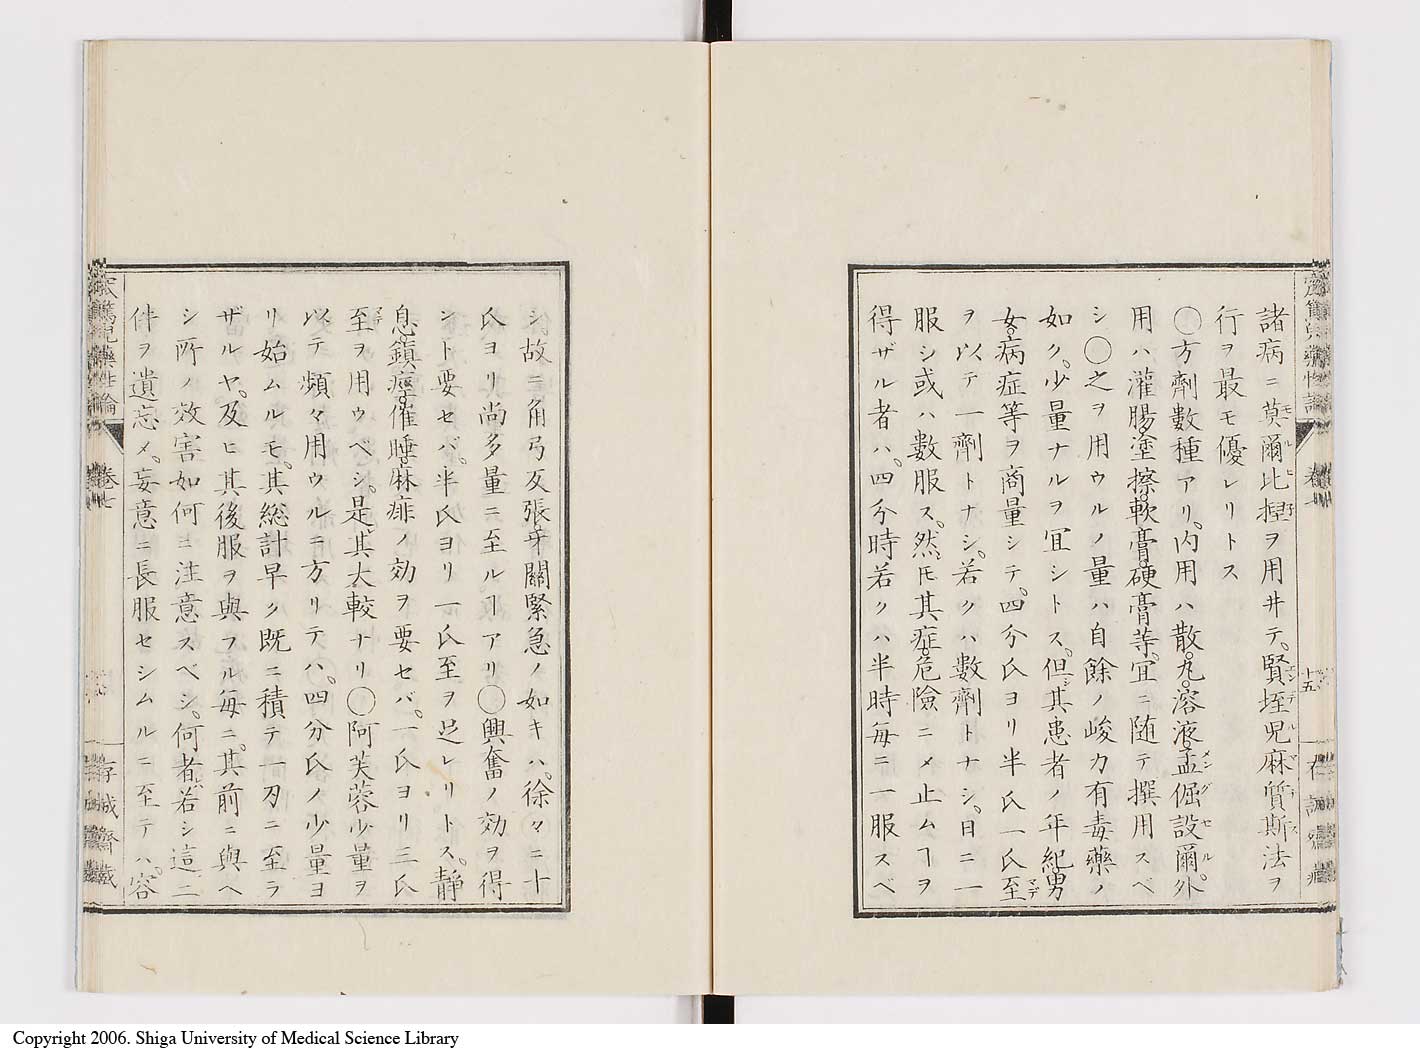 諸病ニ莫爾比捏ヲ用井テ。賢垤児麻質斯法ヲ
行ヲ最モ優レリトス
〇方劑數種アリ。内用ハ散。丸。溶液。孟倔設爾。外
用ハ灌腸。塗擦。軟膏。硬膏等。宜ニ随テ撰用スベ
シ〇之ヲ用ウルノ量ハ自餘ノ峻力有毒藥ノ
如ク。少量ナルヲ宜シトス。但シ其患者ノ年紀。男
女。病症等ヲ商量シテ。四分氏ヨリ半氏一氏至
ヲ以テ一劑トナシ。若クハ數劑トナシ。日ニ一
服シ或ハ數服ス。然𪜈其症。危險ニメ止ムヿヲ
得ザル者ハ。四分時若クハ半時毎ニ一服スベ
十五
シ故ニ角弓反張牙關緊急ノ如キハ。徐々ニ十
氏ヨリ尚多量ニ至ルヿアリ〇興奮ノ効ヲ得
ント要セバ。半氏ヨリ一氏至ヲ足レリトス。靜
息。鎮痙。催睡。麻痱ノ効ヲ要セバ。一氏ヨリ三氏
至ヲ用ウベシ。是其大較ナリ〇阿芙蓉少量ヲ
以テ頻々用ウルニ方リテハ。四分氏ノ少量ヨ
リ始ムルモ。其総計早ク既ニ積テ一刃ニ至ラ
ザルヤ。及ヒ其後服ヲ與フル毎ニ。其前ニ與ヘ
シ所ノ效害如何ニ注意スベシ。何者若シ這二
件ヲ遺忘メ。妄意ニ長服セシムルニ至テハ。容
卷七
Copyright 2006. Shiga University of Medical Science Library